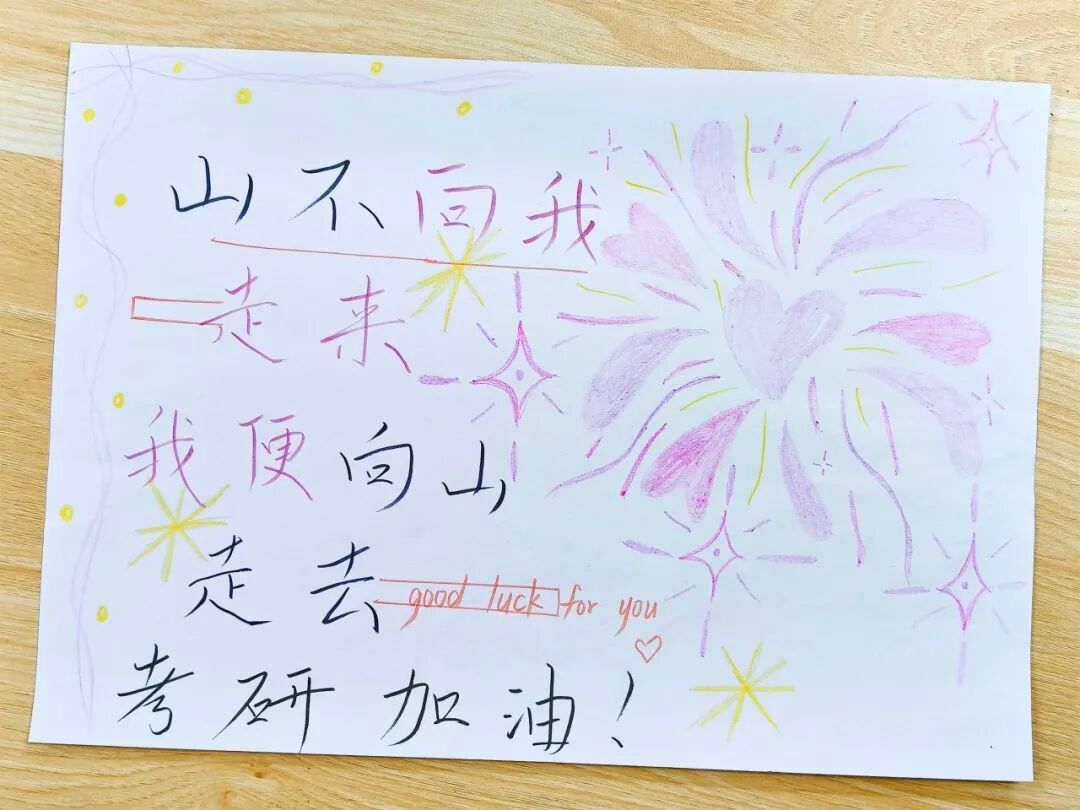 山不向我
走来
我便向山
走去
good luck for you
考研加油!